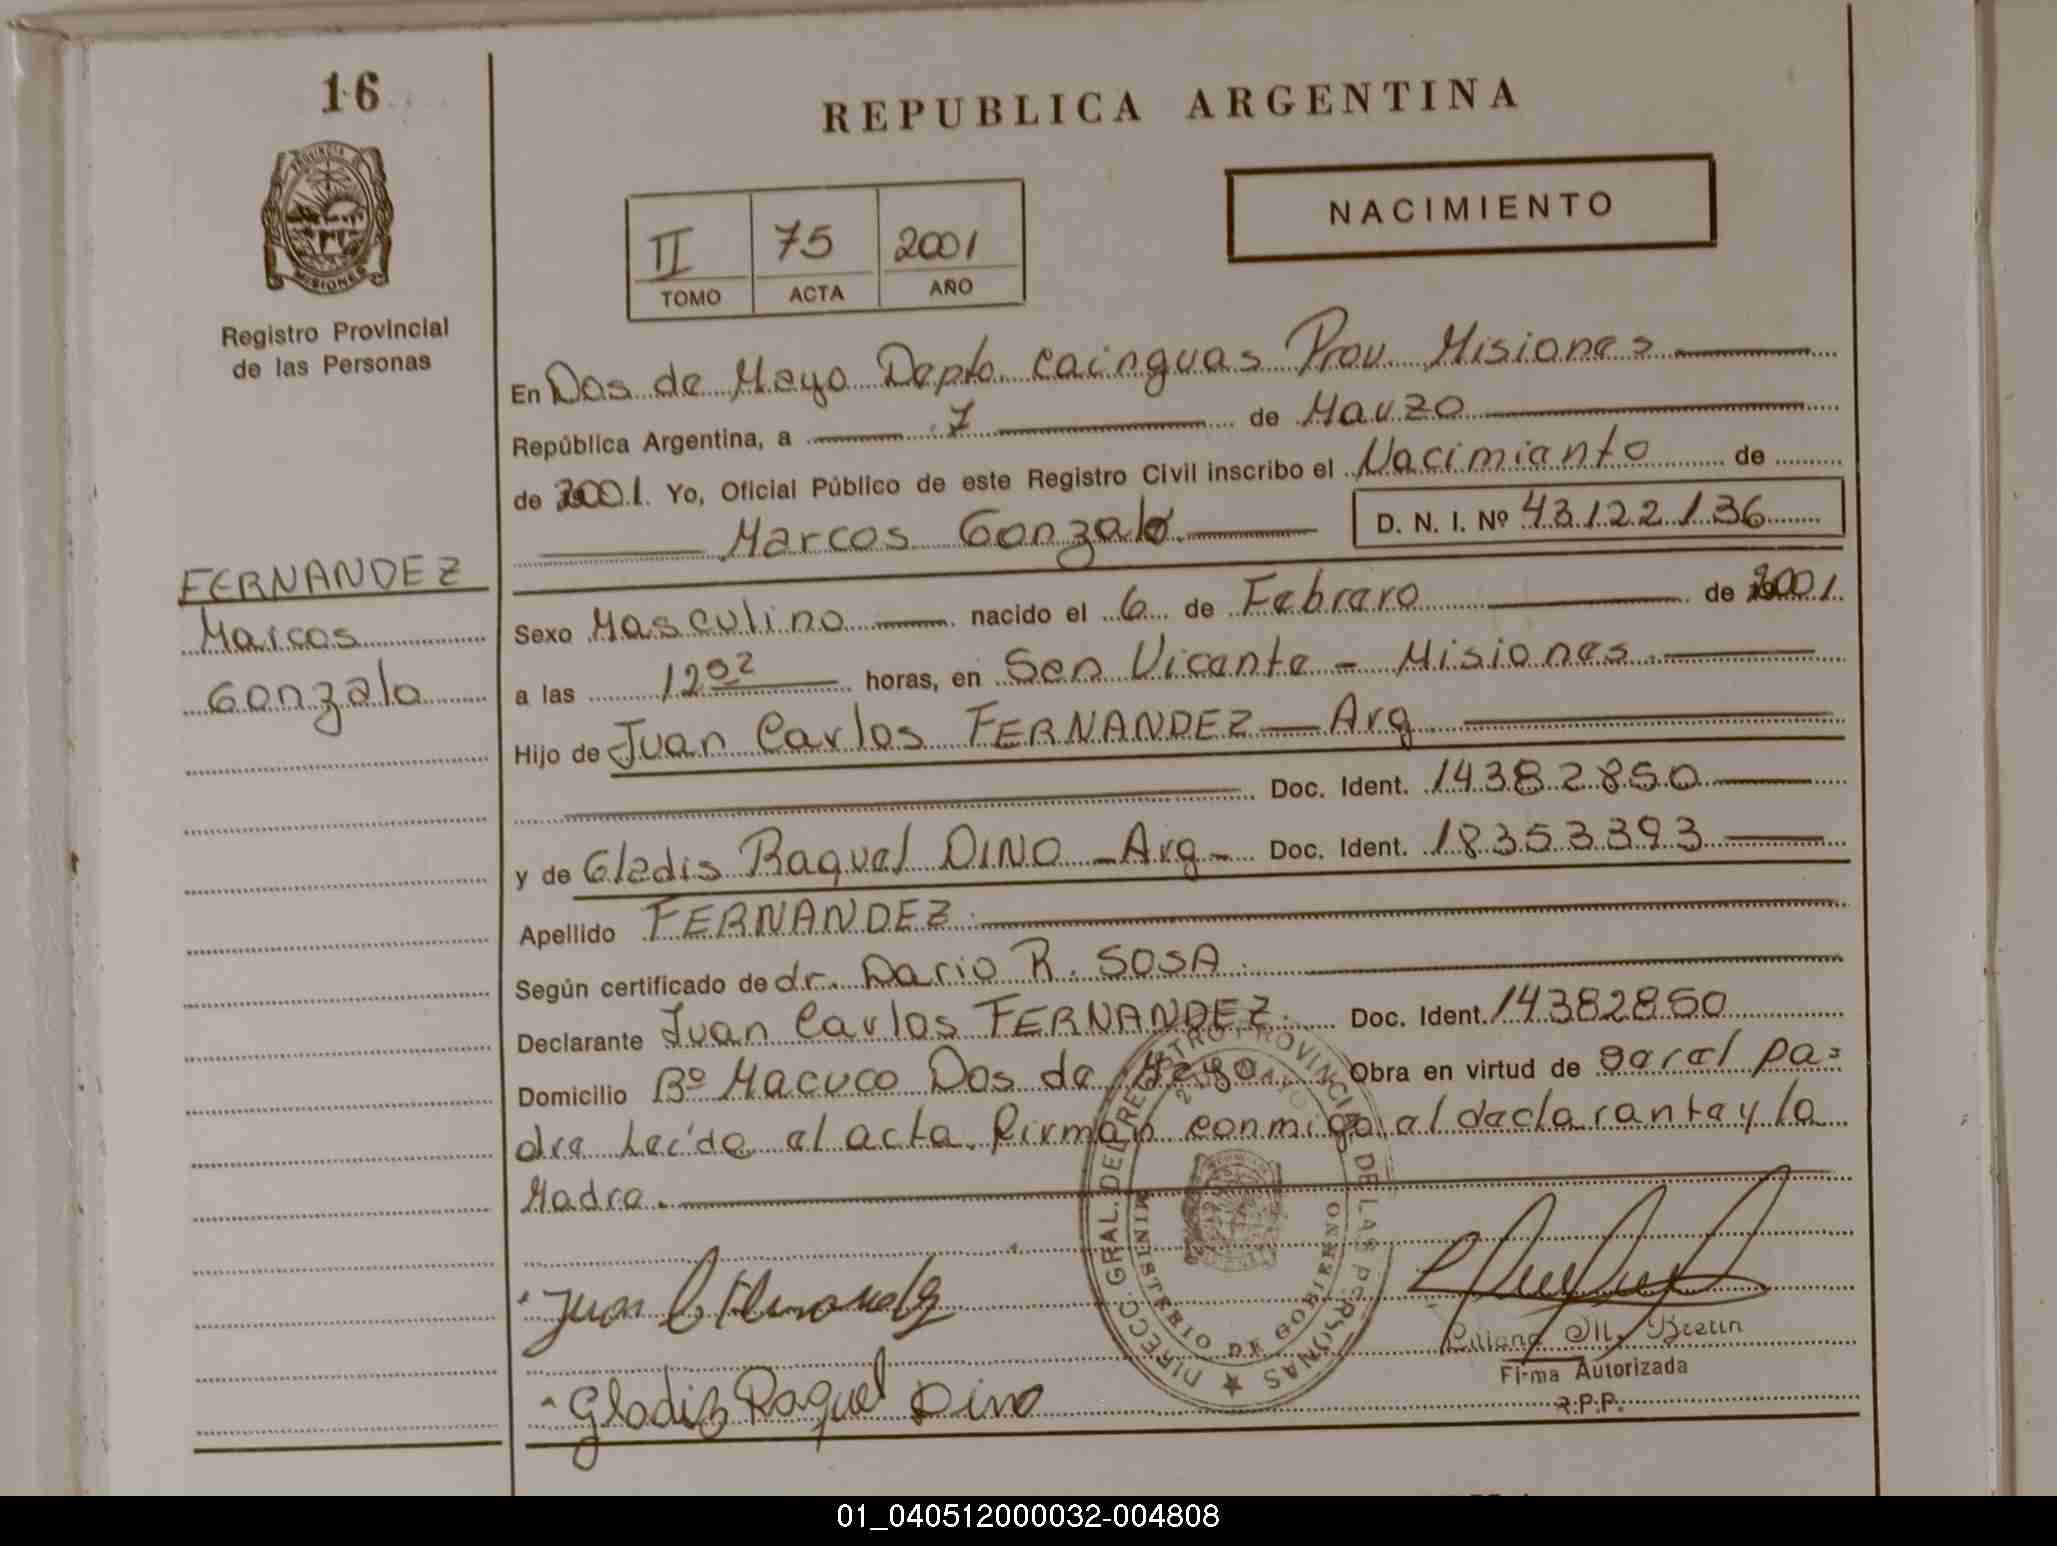 16
REPUBLICA ARGENTINA
NACIMIENTO
II 75 2001
TOMO ACTA AÑO
PROVINCIA DE
MISIONES
Registro Provincial
de las Personas
FERNANDEZ
Marcos
Gonzalo
En Dos de Mayo Depto. Cainguas Prov. Misiones
República Argentina, a 7 de Marzo
de 2001. Yo, Oficial Público de este Registro Civil inscribo el Nacimiento de
Marcos Gonzalo D. N. I. Nº 43.122.136
Sexo Masculino nacido el 6 de Febrero de 2001.
a las 12 02 horas, en San Vicente - Misiones
Hijo de Juan Carlos FERNANDEZ — Arg
Doc. Ident. 14382850
y de Gladis Raquel DINO - Arg - Doc. Ident. 18353393
Apellido FERNANDEZ
Según certificado de dr. Dario R. SOSA
Declarante Juan Carlos FERNANDEZ Doc. Ident. 14382850
Domicilio Bº Macuco Dos de Mayo Obra en virtud de ser el pa=
dre Leída el acta firman conmigo el declarante y la
Madre.
DIRECC. GRAL. DEL REGISTRO PROVINCIAL DE LAS PERSONAS
MINISTERIO DE GOBIERNO
Juan C. Fernandez
Gladiz Raquel Dino
Liliana M. Breun
Firma Autorizada
R.P.P.
01_040512000032-004808